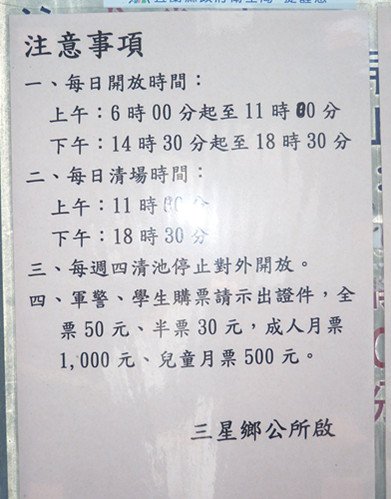 注意事項
一、每日開放時間：
上午：6時00分起至11時00分
下午：14時30分起至18時30分
二、每日清場時間：
上午：11時 分
下午：18時30分
三、每週四清池停止對外開放。
四、軍警、學生購票請示出證件，全
票50元、半票30元，成人月票
1,000元、兒童月票500元。
三星鄉公所啟